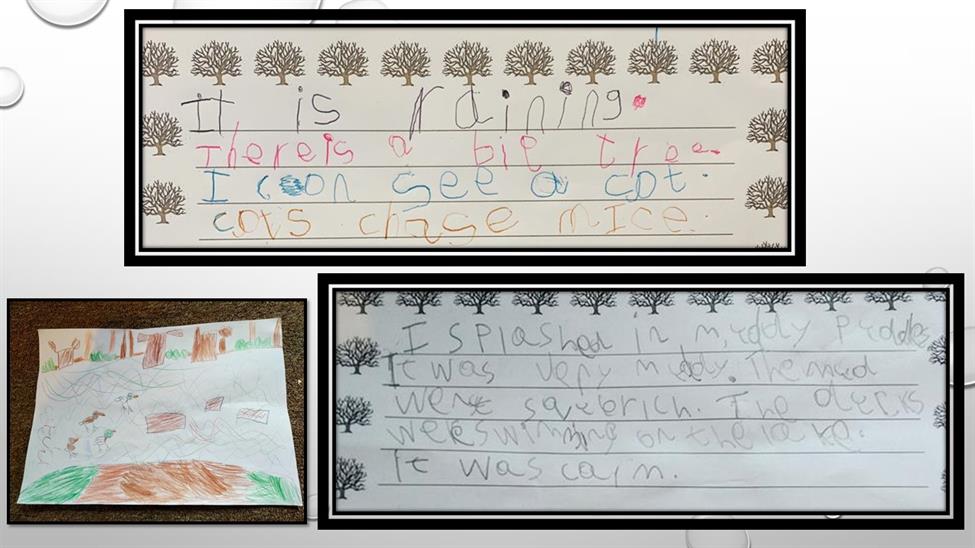 It is raining.
There is a big tree.
I can see a cat.
cats chase mice.
I splashed in muddy puddles
It was very muddy. The mud
went squelrich. The ducks
were swimming on the lake.
It was calm.